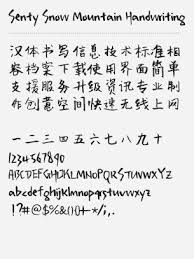 Senty Snow Mountain Handwriting
汉体书写信息技术标准相
容档案下载使用界面简单
支援服务升级资讯专业制
作创意空间快速无线上网
一二三四五六七八九十
1234567890
ABCDEFGHIJKLMNOPQRSTUVWXYZ
abcdefghijklmnopqrstuvwxyz
!?#@$%&(){}+-*/;,.